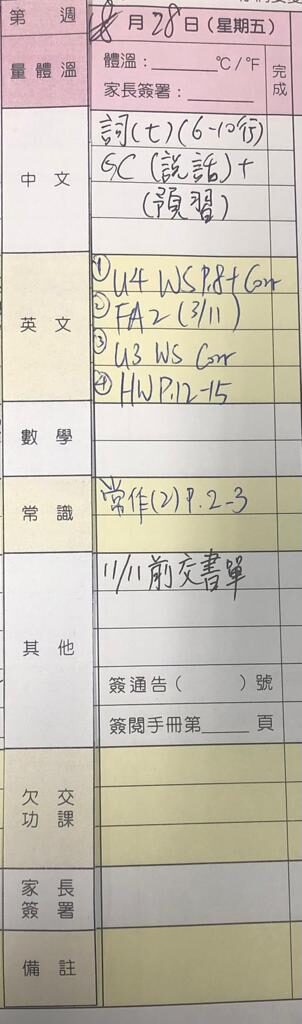 第 週
月 28 日 (星期五)
量體溫
體溫：______°C/°F
家長簽署：______
完成
中文
詞(七)(6-10行)
GC (說話)+
(預習)
英文
① U4 WS P.8+Corr
② FA2 (3/11)
③ U3 WS Corr
④ HW P.12-15
數學
常識
常作(2) P.2-3
其他
11/11前交書單
簽通告( )號
簽閱手冊第____頁
欠交功課
家長簽署
備註